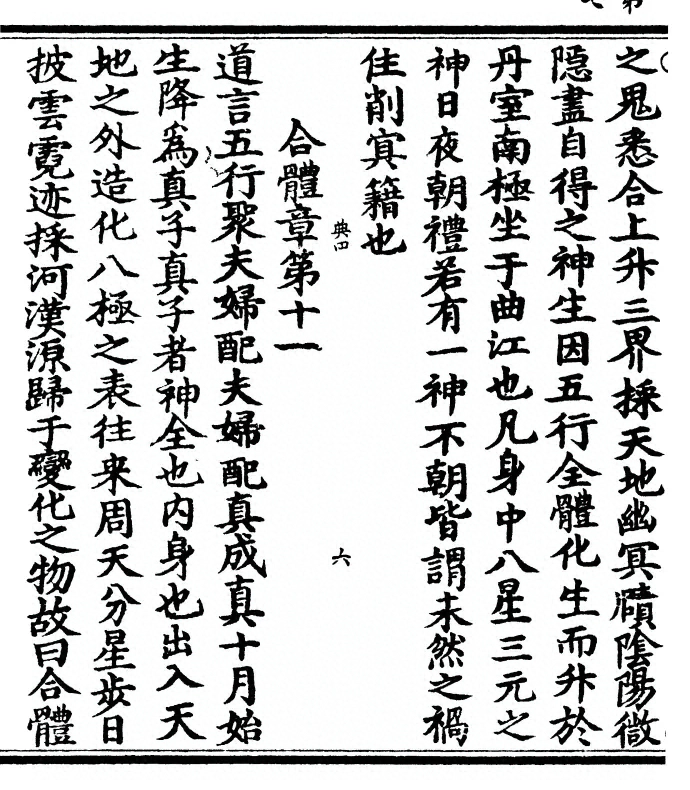 之鬼悉合上升三界採天地幽冥賾陰陽微
隱盡自得之神生因五行全體化生而升於
丹室南極坐于曲江也凡身中八星三元之
神日夜朝禮若有一神不朝皆謂未然之禍
住削寘籍也
典四
六
合體章第十一
道言五行聚夫婦配夫婦配真成真十月始
生降爲真子真子者神全也内身也出入天
地之外造化八極之表往来周天分星步日
披雲霓迹採河漢源歸于變化之物故曰合體